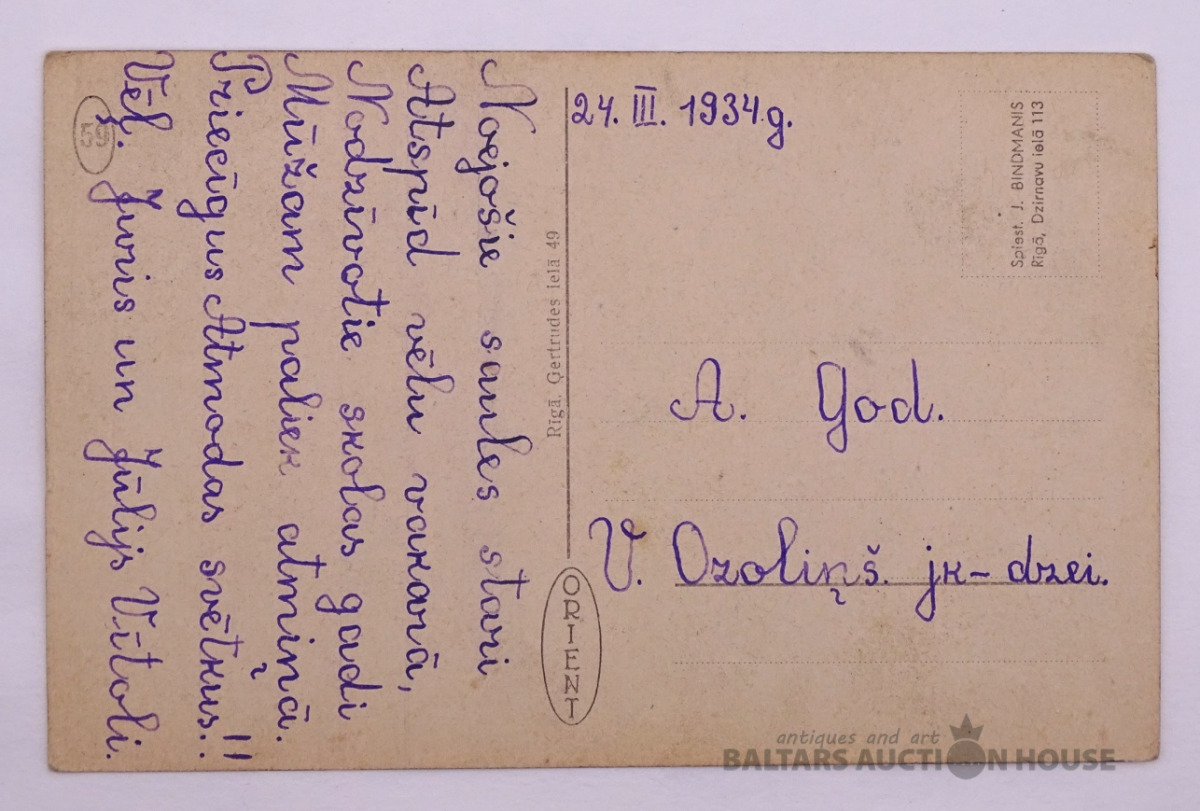 Noejošie saules stari
Atspīd vēlu vakarā,
Nodzīvotie skolas gadi
Mūžam paliek atmiņā.
Priecīgus Atmodas svētkus!!
Vēl. Juris un Jūlijs Vītoli.
59
Rīgā, Ģertrudes ielā 49
ORIENT
24. III. 1934.g.
Spiest. J. BINDMANIS
Rīgā, Dzirnavu ielā 113
A. God.
V. Ozoliņš. jk-dzei.
antiques and art
BALTARS AUCTION HOUSE